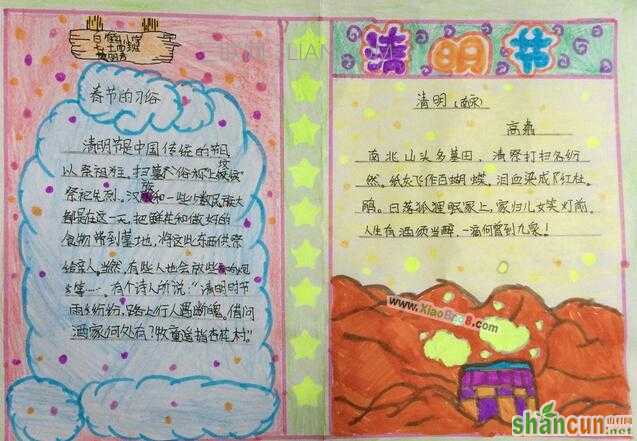 清明节
春节的习俗
清明节是中国传统的节日
以祭祖难,扫墓人俗称"上坟
祭祀先烈。汉族和一些少数民族大
都是在这一天把鲜花和做好的
食物带到墓地,将这些东西供祭
给亲人。当然,有些人也会
有个诗人所说:"清明时节
雨纷纷,路上行人遇断魂。借问
酒家何处有?牧童遥指杏花村。"
清明(南宋)
高翥
南北山头多墓田,清祭打扫各纷
然。纸灰飞作百蝴蝶,泪血染成红杜
鹃。日落狐狸眠冢上,家归儿女笑灯前。
人生有酒须当醉,一滴何曾到九泉!
www.XiaoBao8.com
shancun
山村网
.net